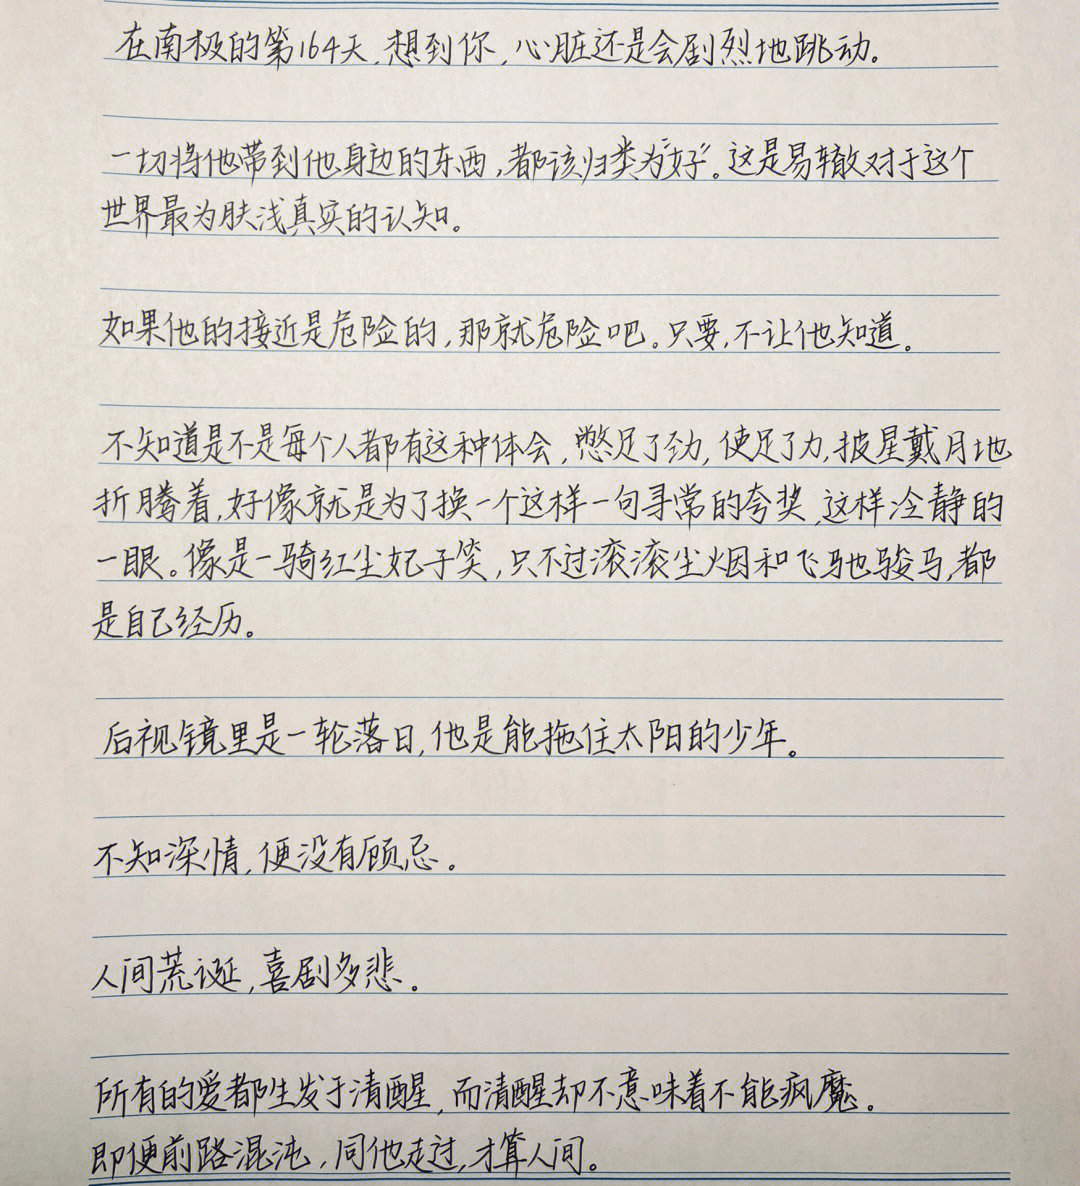 在南极的第164天,想到你,心脏还是会剧烈地跳动。
一切将他带到他身边的东西,都该归类为“好”。这是易辙对于这个
世界最为肤浅真实的认知。
如果他的接近是危险的,那就危险吧。只要,不让他知道。
不知道是不是每个人都有这种体会,憋足了劲,使足了力,披星戴月地
折腾着,好像就是为了换一个这样一句寻常的夸奖,这样冷静的
一眼。像是一骑红尘妃子笑,只不过滚滚尘烟和飞驰骏马,都
是自己经历。
后视镜里是一轮落日,他是能拖住太阳的少年。
不知深情,便没有顾忌。
人间荒诞,喜剧多悲。
所有的爱都生发于清醒,而清醒却不意味着不能疯魔。
即便前路混沌,同他走过,才算人间。